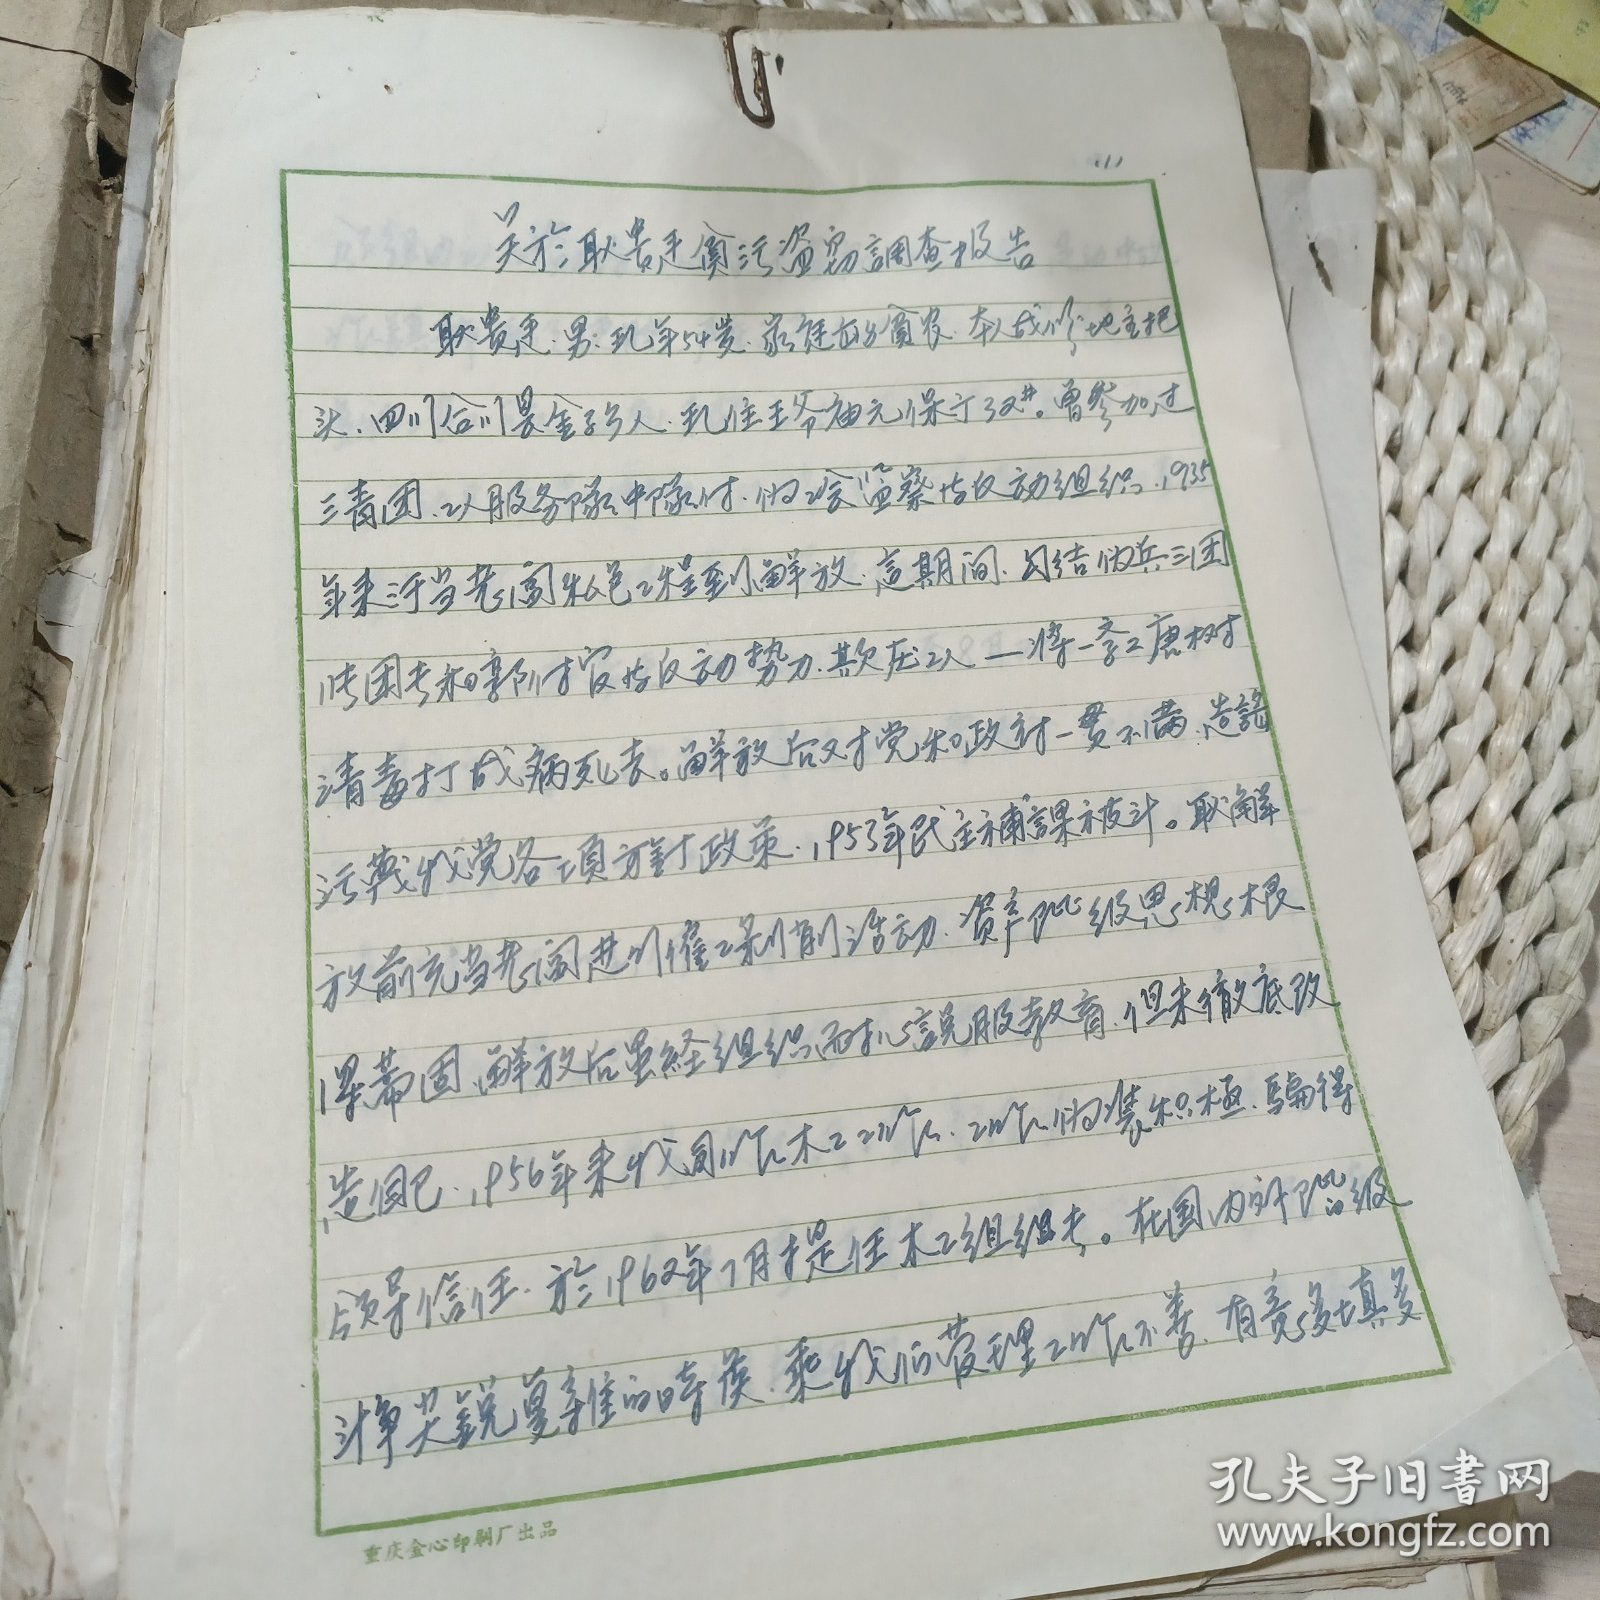 关於耿贵廷貪污盗窃調查报告
耿贵廷、男、现年54岁、家庭出身貧农、本人成份地主把
头、四川合川县金子乡人、现住王爷庙元保丁32#。曾参加过
三青团、工人服务隊中隊付、伪工会监察等反动组织、1935
年来汙当老闆私包工程到解放、這期间、勾结伪兵三团
团长和郭附官等反动势力、欺压工人一将一李工唐树
清毒打成病死去。解放后又对党和政府一贯不满、造謡
污蔑我党各項方針政策、1953年民主補課被斗。耿解
放前充当老闆进行僱工剥削活动、资产阶级思想根
深蒂固、解放后虽経组织再扎説服教育、但未徹底改
造自己、1956年来我司作木工工作、工作伪装积極、騙得
领导信任、於1962年7月提任木工组组长。在国内外阶级
斗争尖銳复雜的時候、乘我们管理工作不善、有意多填多
重庆金心印刷厂出品
孔夫子旧书网
www.kongfz.com